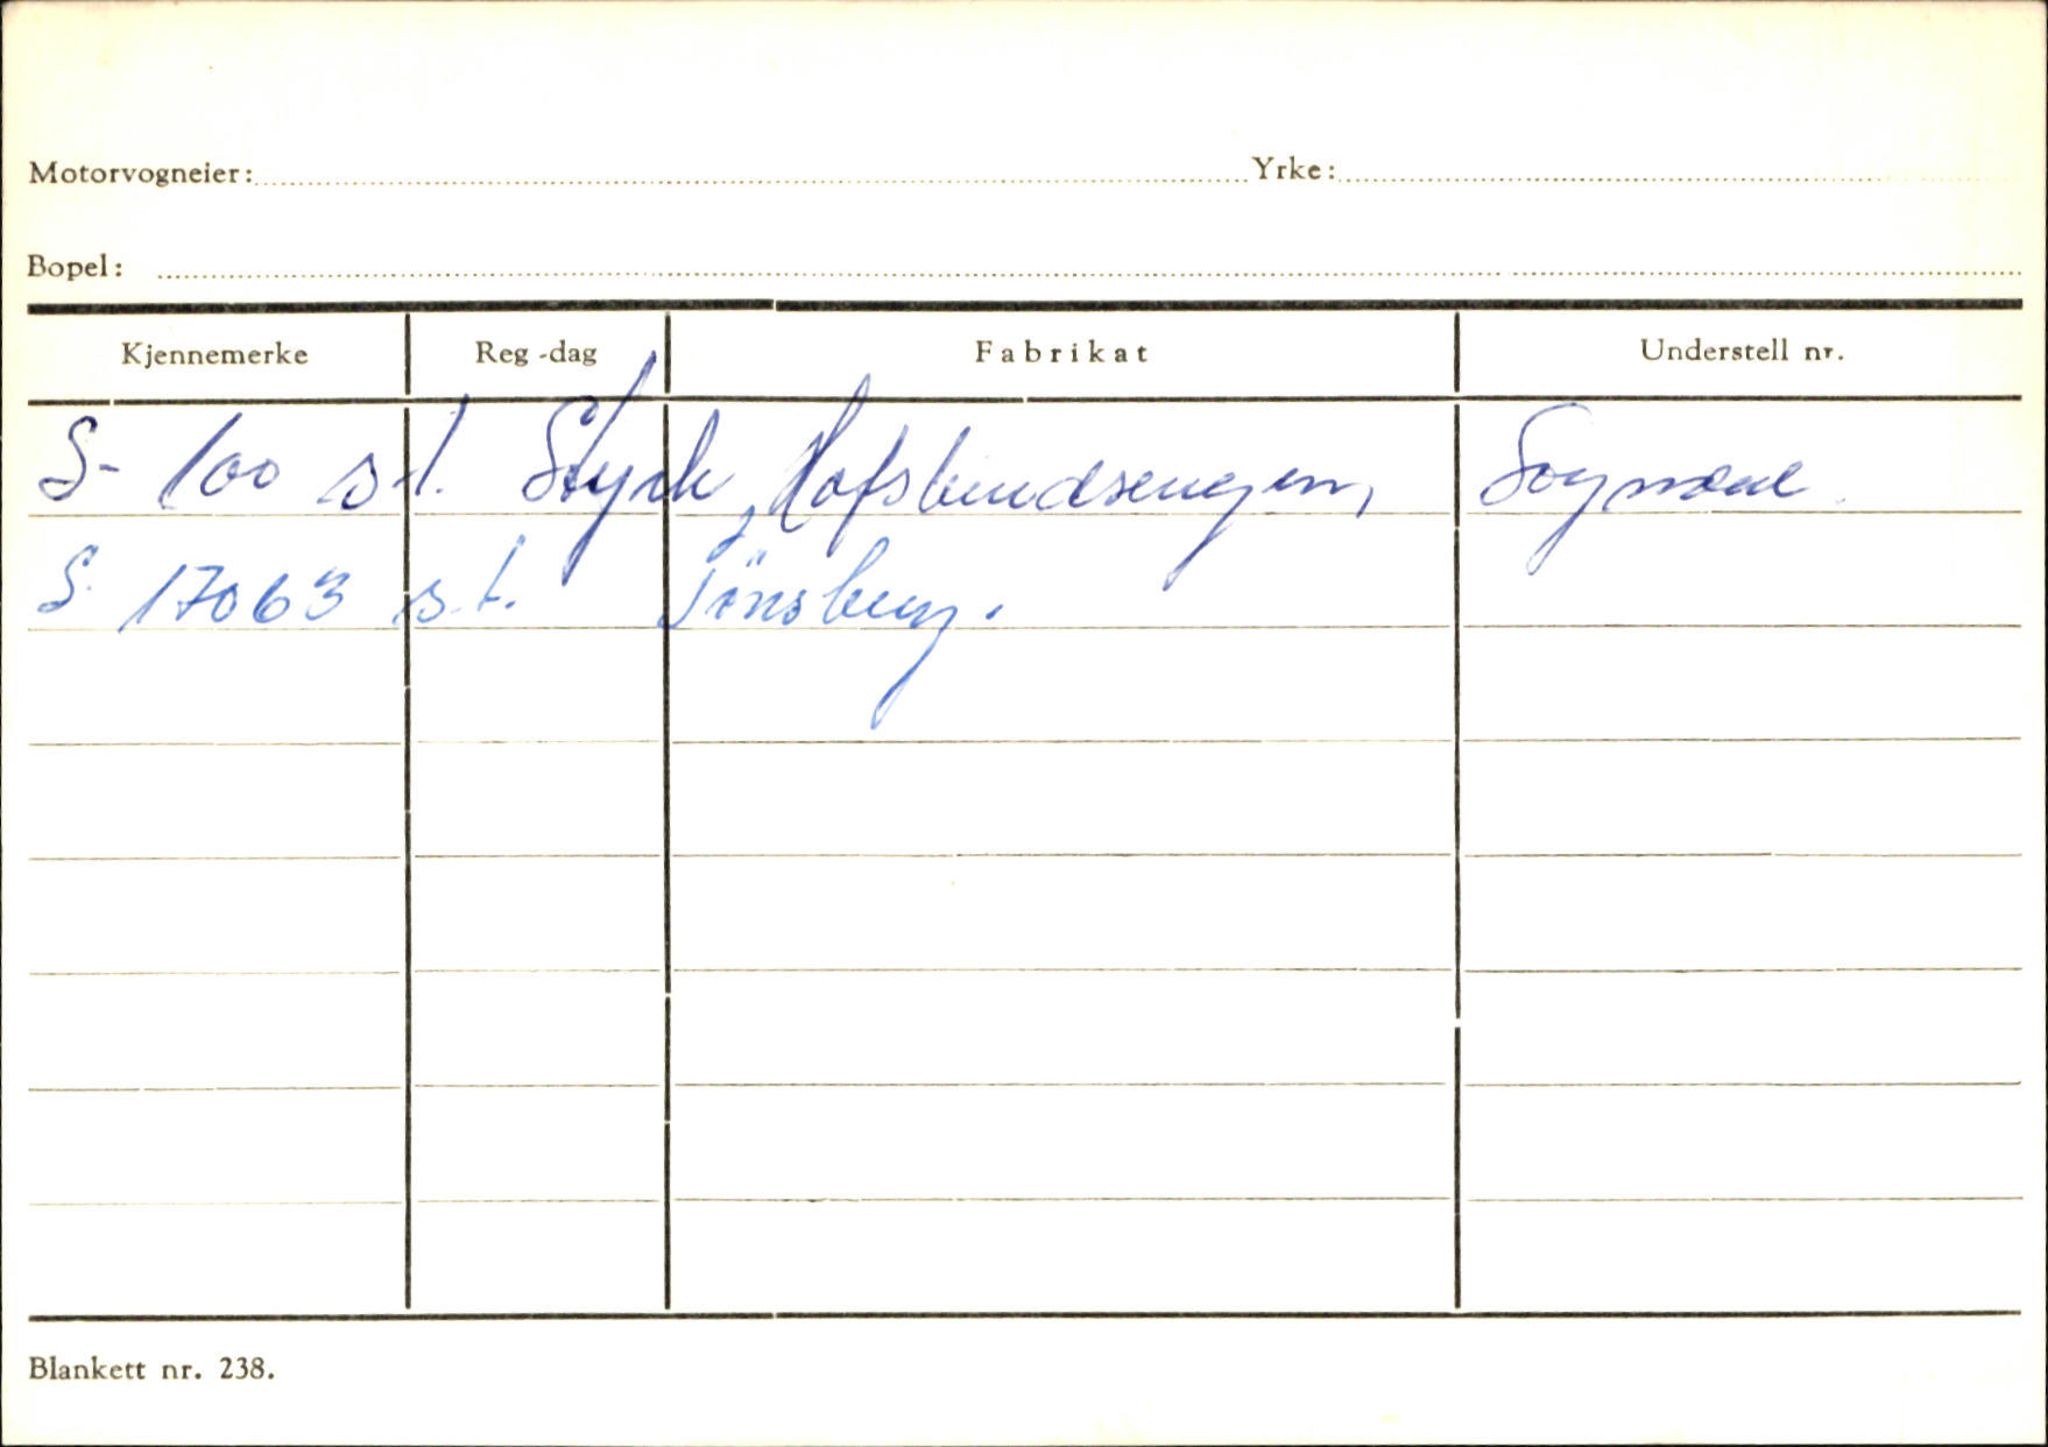 Motorvogneier: Yrke:
Bopel:
Kjennemerke Reg-dag Fabrikat Understell nr.
S- 100 s.t. Hafslundsengen,
S. 17063 s.t. Tönsberg.
Blankett nr. 238.